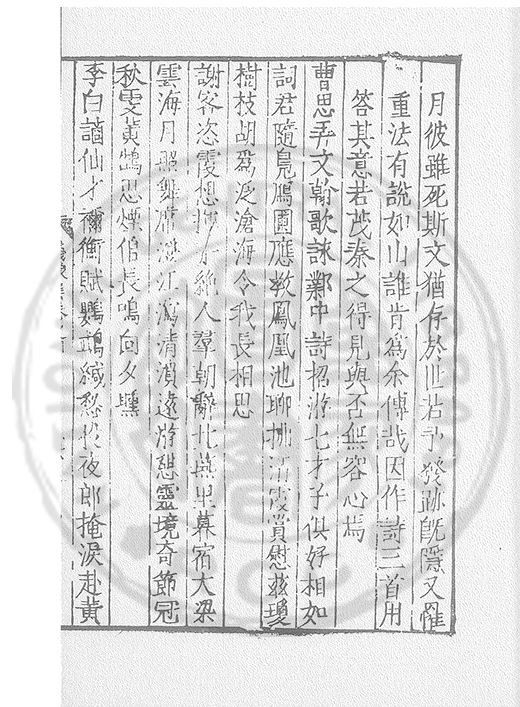 月彼雖死斯文猶存於世若予發跡旣隱又罹
重法有說如山誰肯爲余傳哉因作詩三首用
答其意若茂秦之得見與否無容心焉
曹思弄文翰歌詠鄴中詩招游七才子俱好相如
詞君隨鳧鴈園應教鳳凰池聊 清霞賞慰玆瓊
樹枝胡爲泛滄海令我長相思
謝客恣霞想 絶人羣朝辭北燕里暮宿大梁
雲海月照舞席 江瀉清濆遠游憩靈境奇節冠
秋雯黃鵠思 侶長鳴向夕曛
李白謫仙才禰衡賦鸚鵡緘愁投夜郎掩淚赴黃